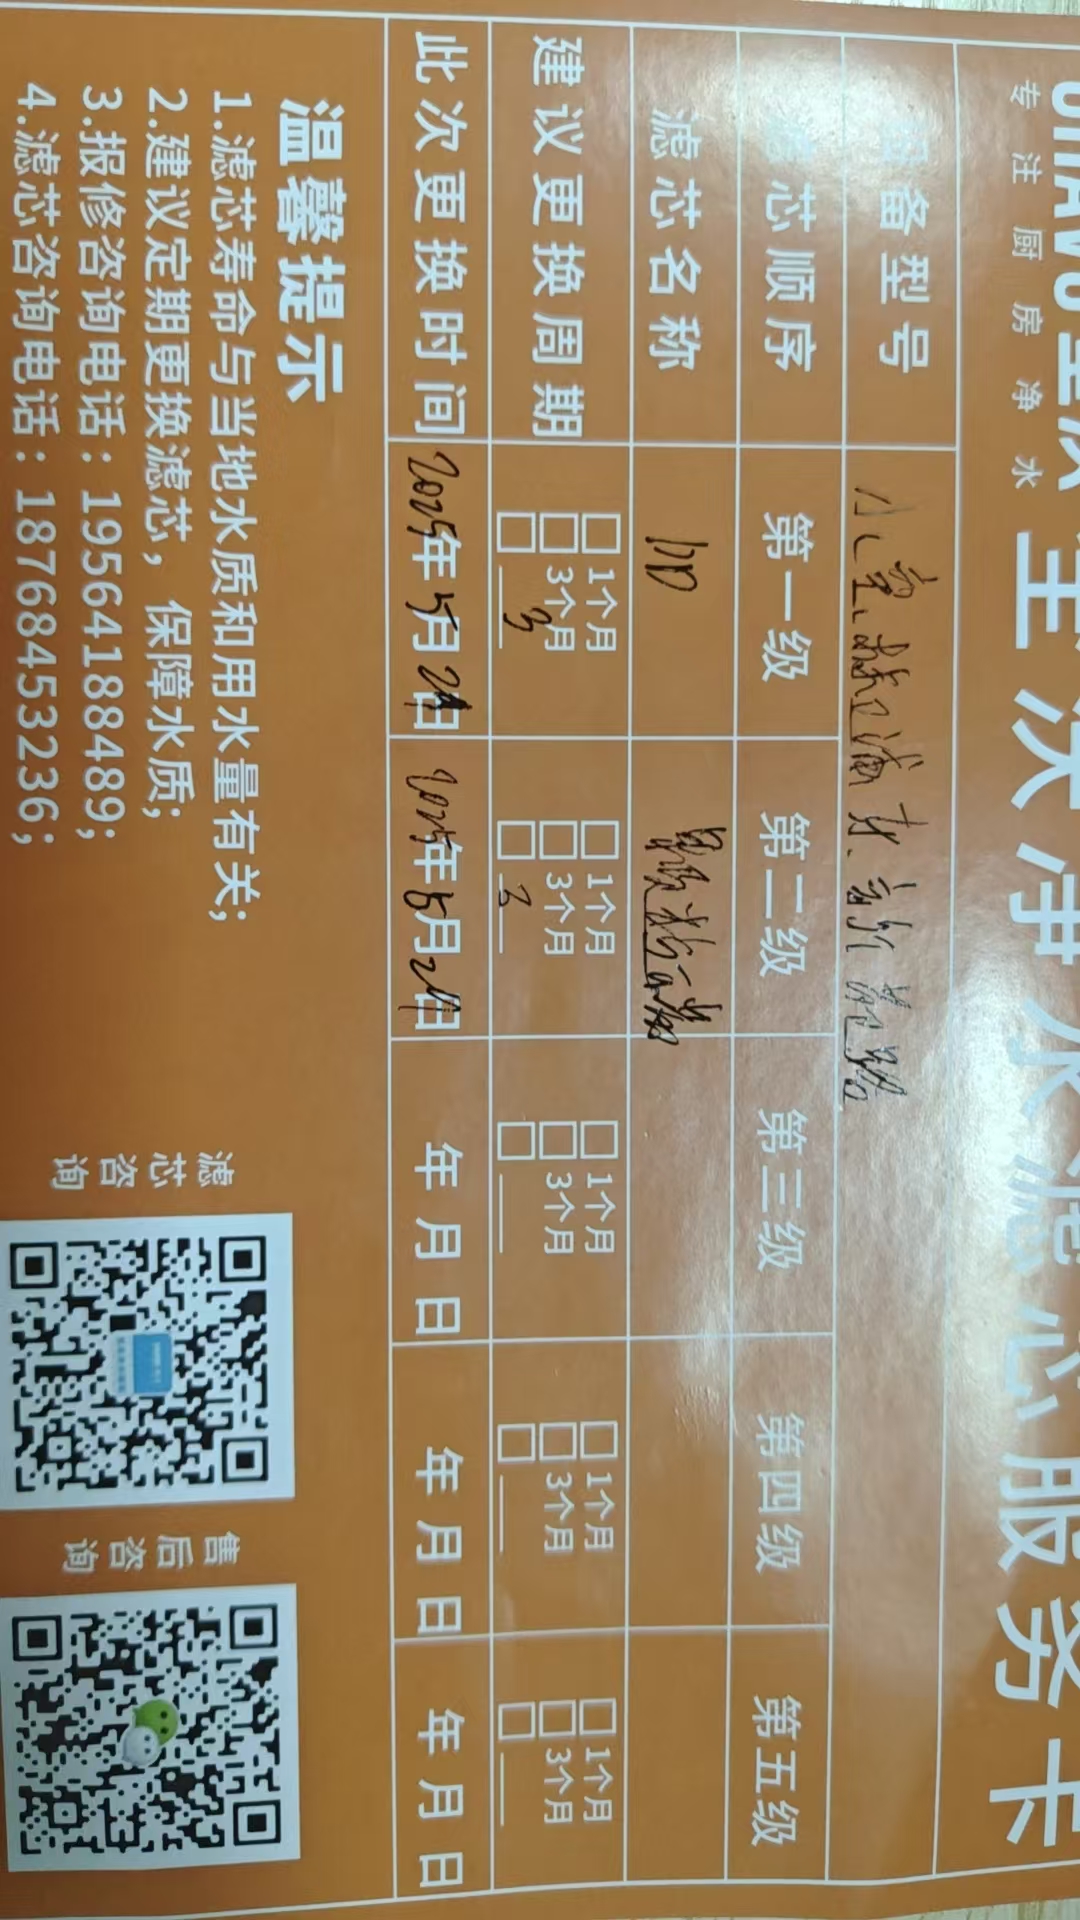 专注厨房净水
净水滤芯服务卡
设备型号
滤芯顺序 第一级 第二级 第三级 第四级 第五级
滤芯名称
建议更换周期 □1个月 □3个月 □ 3 □1个月 □3个月 □ 3 □1个月 □3个月 □ □1个月 □3个月 □ □1个月 □3个月 □
此次更换时间 2025年5月29日 2025年5月29日 年 月 日 年 月 日 年 月 日
温馨提示
1.滤芯寿命与当地水质和用水量有关;
2.建议定期更换滤芯，保障水质;
3.报修咨询电话：19564188489;
4.滤芯咨询电话：18768453236;
滤芯咨询
售后咨询